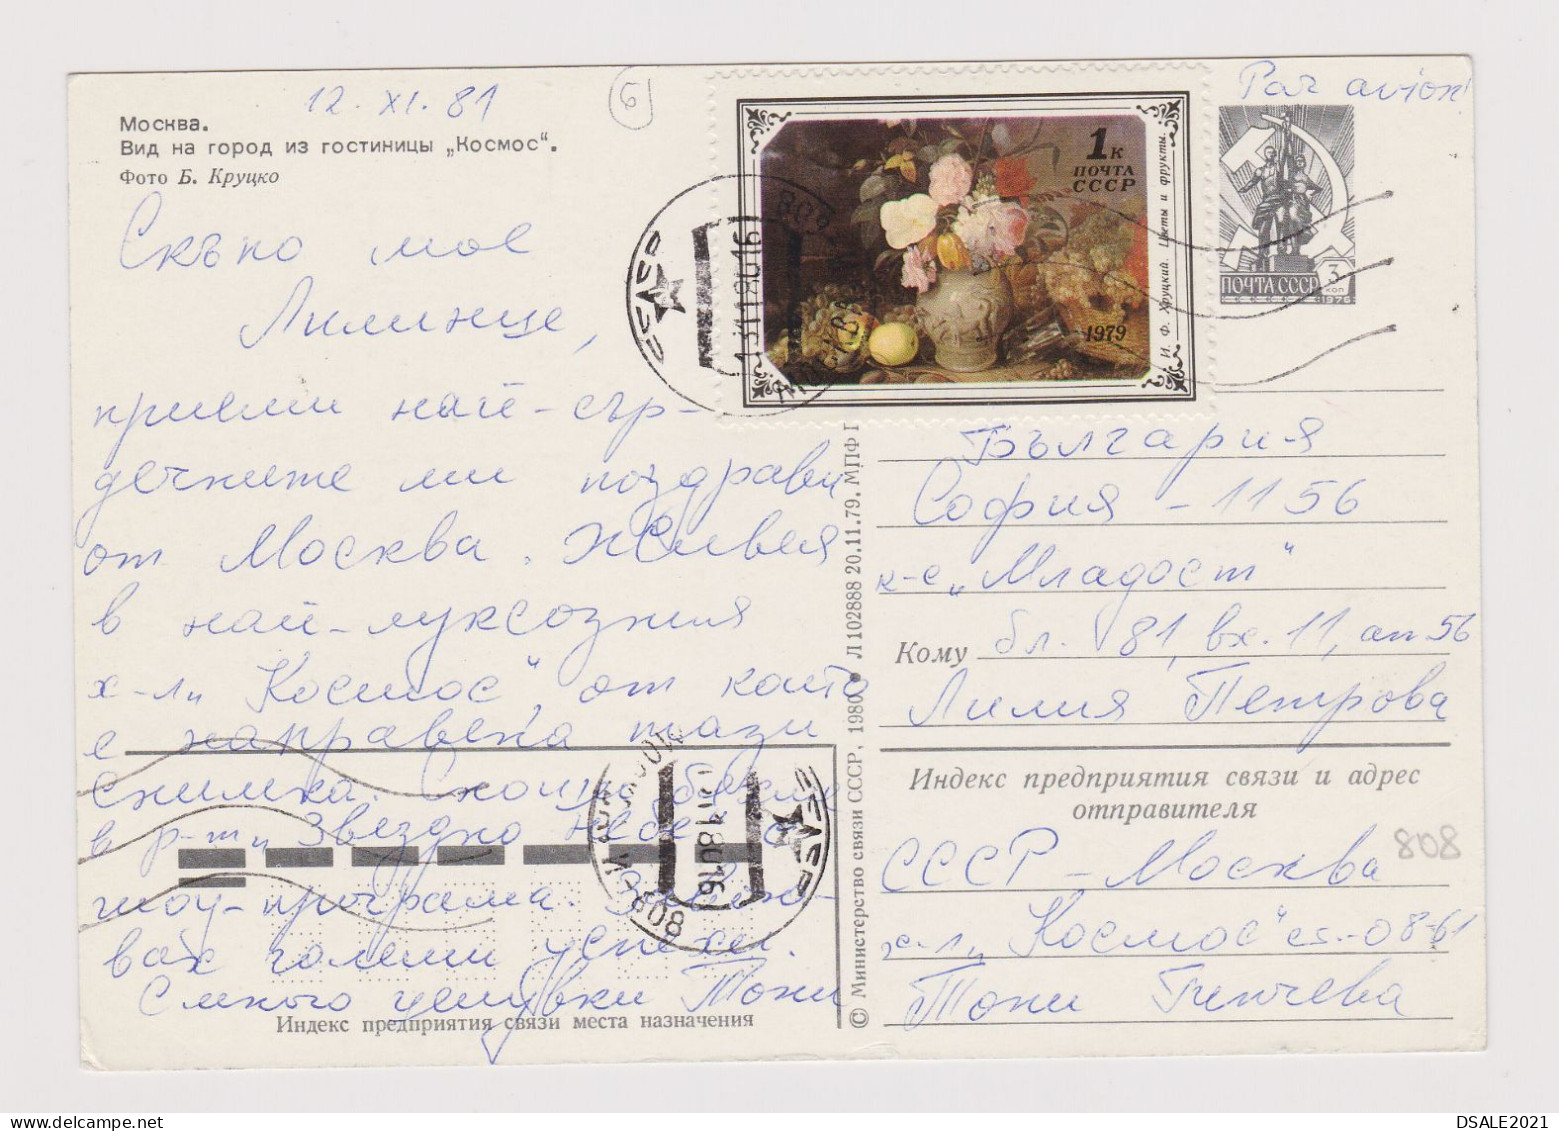 12. XI. 81
6
Par avion
Москва.
Вид на город из гостиницы „Космос“.
Фото Б. Круцко
1к
ПОЧТА
СССР
1979
И. Ф. Хруцкий. Цветы и фрукты.
ПОЧТА СССР 3 коп
1976
Скъпо мое
Лилинце,
приеми най-сър-
дечните ми поздрави
от Москва. Живея
в най-луксозния
х-л „Космос“, от който
е направена тази
снимка. Снощи бяхме
в р-т „Звездно небе“
шоу-програма.
големи успехи.
С много целувки Тони
Индекс предприятия связи места назначения
© Министерство связи СССР, 1980 ● Л 102888 20.11.79. МПФ Г
България
София - 1156
к-с „Младост“
Кому бл. 81, вх. 11, ап 56
Лилия Петрова
Индекс предприятия связи и адрес
отправителя
СССР - Москва
808
х-л „Космос“ ст.-08-61
Тони Гинчева
МОСКВА 808
МОСКВА-808
DSALE2021